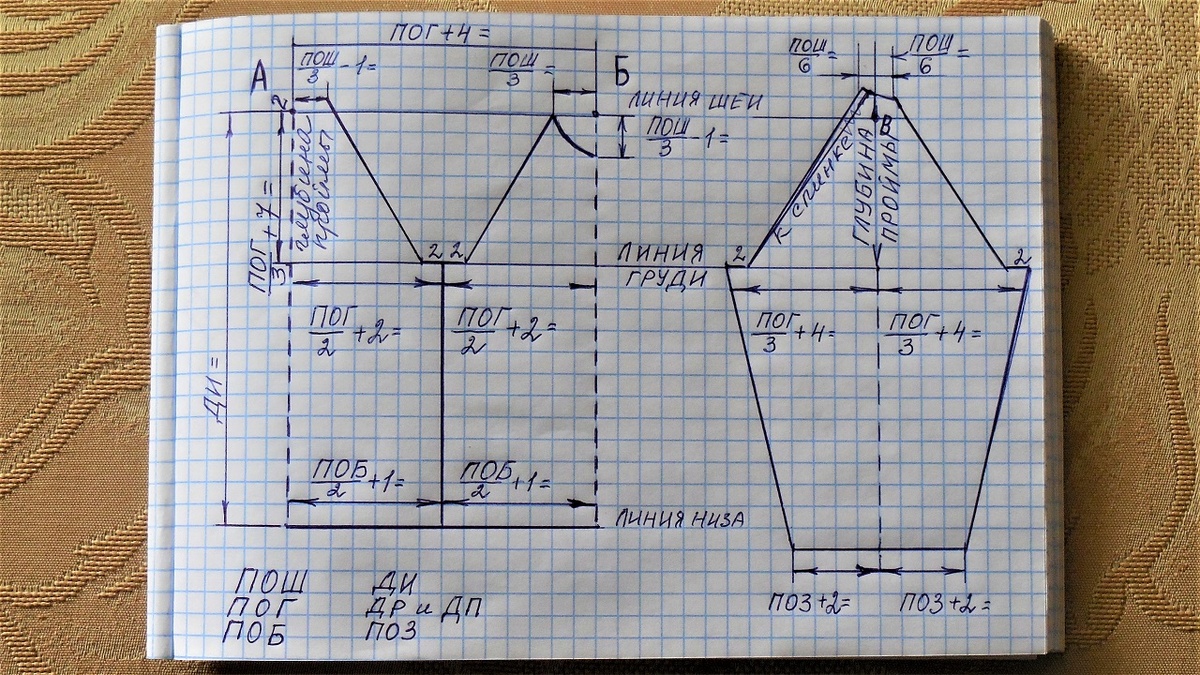 ПОГ+4=
А
ПОШ/3 -1=
ПОШ/3 =
Б
ПОШ/6 =
ПОШ/6 =
2
ЛИНИЯ ШЕИ
ПОШ/3 -1=
В
глубина
проймы
ПОГ/3 +7=
к спинке
ГЛУБИНА
ПРОЙМЫ
2 2
ЛИНИЯ
ГРУДИ
2
2
ПОГ/2 +2=
ПОГ/2 +2=
ПОГ/3 +4=
ПОГ/3 +4=
ДИ=
ПОБ/2 +1=
ПОБ/2 +1=
ЛИНИЯ НИЗА
ПОЗ+2=
ПОЗ+2=
ПОШ ДИ
ПОГ ДР и ДП
ПОБ ПОЗ